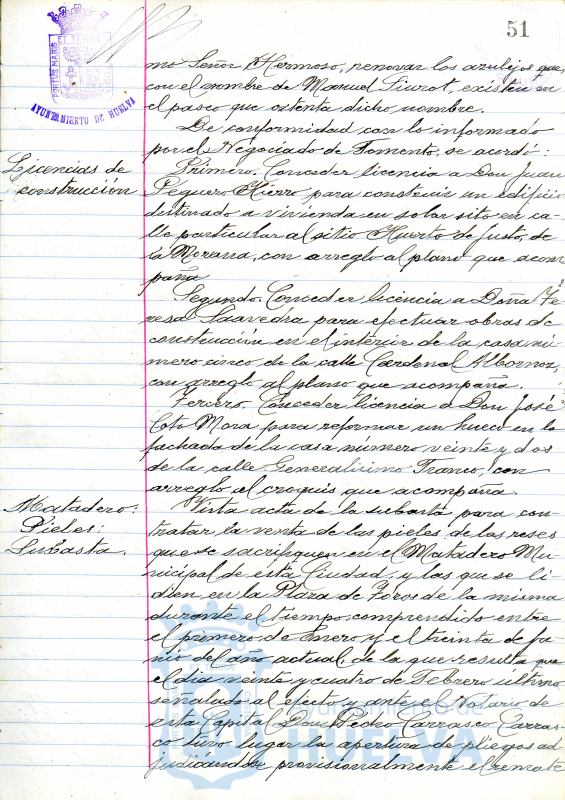 51
PORTUS MARIS
AYUNTAMIENTO DE HUELVA
mo Señor Hermoso, renovar los azulejos que,
con el nombre de Manuel Siurot, existen en
el paseo que ostenta dicho nombre.
De conformidad con lo informado
por el Negociado de Fomento, se acordó:
Licencias de
construcción
Primero. Conceder licencia a Don Juan
Peguero Hierro para construir un edificio
destinado a vivienda en solar sito en ca-
lle particular al sitio Huerto de Justo, de
la Morana, con arreglo al plano que acom
paña
Segundo. Conceder licencia a Doña Te-
resa Saavedra para efectuar obras de
construcción en el interior de la casa nú-
mero cinco de la calle Cardenal Albornoz,
con arreglo al plano que acompaña.
Tercero. Conceder licencia a Don José
Coto Mora para reformar un hueco en la
fachada de la casa número veinte y dos
de la calle Generalísimo Franco, con
arreglo al croquis que acompaña.
Matadero:
Pieles:
Subasta.
Vista acta de la subasta para con-
tratar la venta de las pieles de las reses
que se sacrifiquen en el Matadero Mu-
nicipal de esta Ciudad, y las que se li-
dien en la Plaza de Toros de la misma
durante el tiempo comprendido entre
el primero de Enero y el treinta de Ju-
nio del año actual, de la que resulta que
el día veinte y cuatro de Febrero último
señalado al efecto y ante el Notario de
esta Capital Don Pedro Carrasco Carras-
co tuvo lugar la apertura de pliegos ad-
judicándose provisionalmente el remate
HUELVA